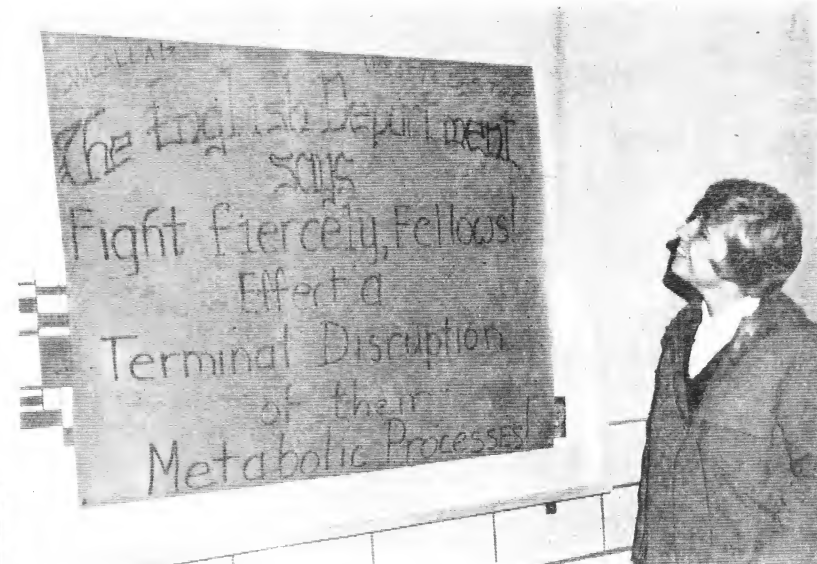 The English Department
says
Fight fiercely, Fellows!
Effect a
Terminal Disruption
of their
Metabolic Processes!